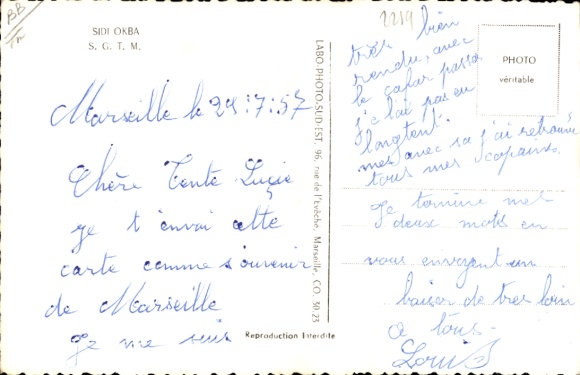 BB
SIDI OKBA
S. G. T. M.
Marseille le 29:7:57
Chère Tente Lucie
je t'envoi cette
carte comme souvenir
de Marseille
Je me suis
Reproduction Interdite
LABO-PHOTO-SUD-EST, 96, rue de l'Evêche, Marseille, CO. 30.23
2219
PHOTO
véritable
très bien
rendu, avec
le cafar passa
je l'ai pas eu
longtent.
mes avec sa j'ai retrouvé
tous mes copains.
Je termine mes
deux mots en
vous envoyent un
baiser de tres loin
a tous.
Louis